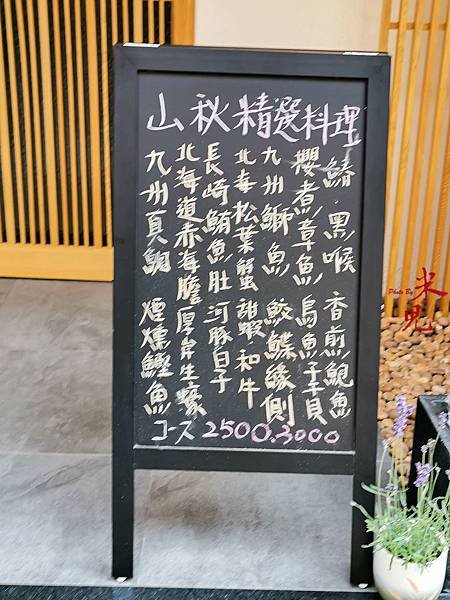 山秋精選料理
鰆.黑喉 香煎鯢魚
櫻煮章魚 烏魚子干貝
九州鰤魚 鮫鰈緣側
北海松葉蟹 甜蝦和牛
長崎鮪魚肚 河豚白子
北海道赤海膽 厚岸生蠔
九州真鯛 煙燻鰹魚
コース 2500.3000
Photo By